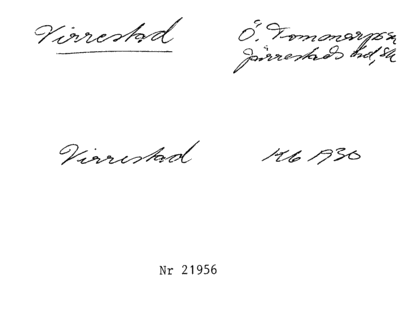 Virrestad Ö. Tommarps sn
Järrestads hd, Sk
Virrestad Kb 1930
Nr 21956